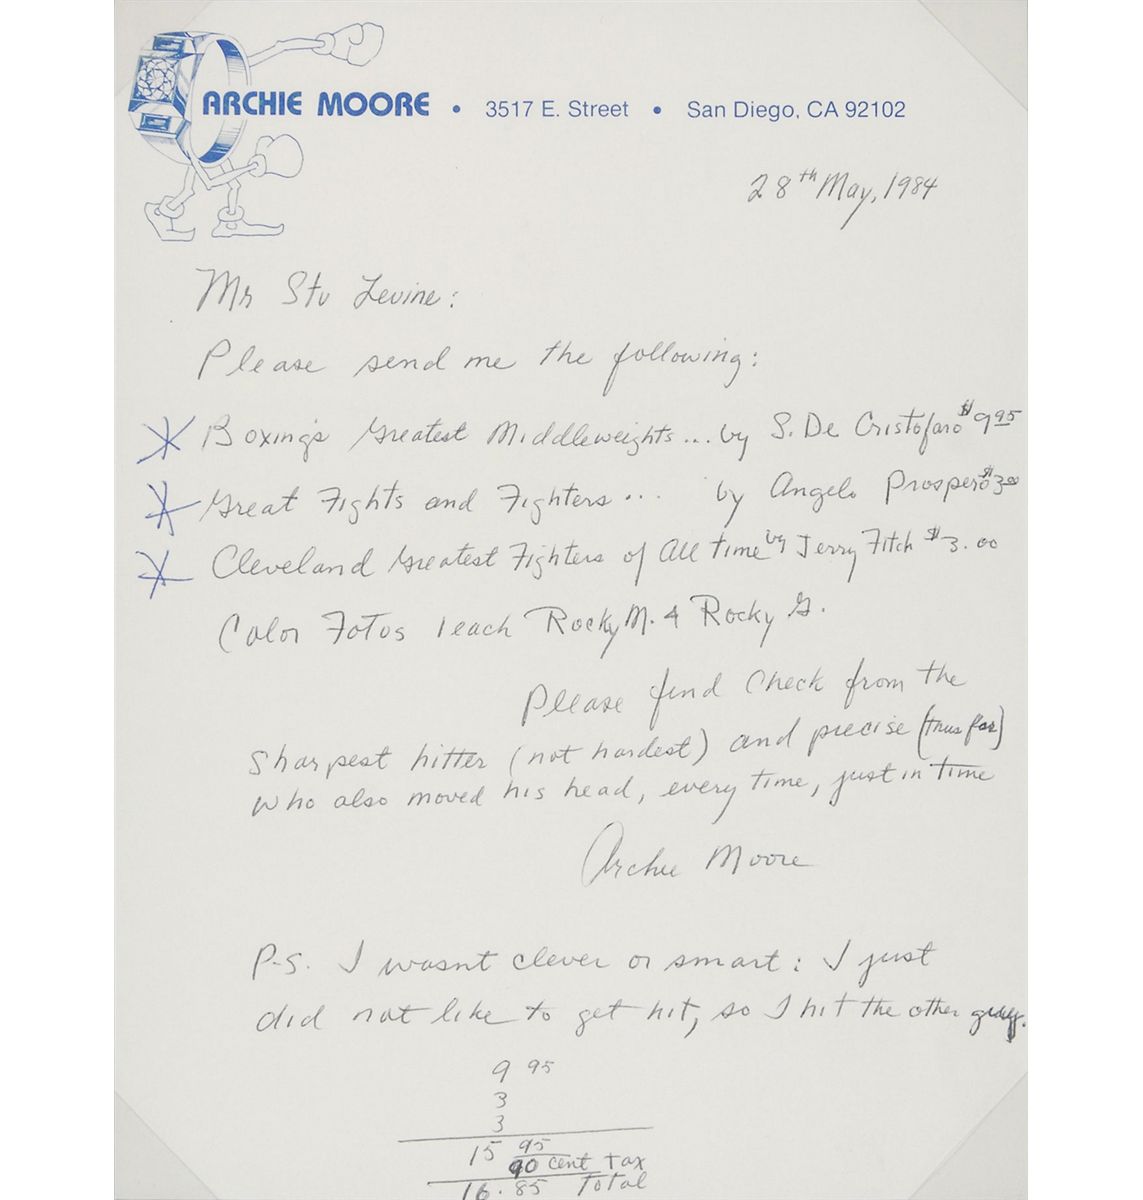 ARCHIE MOORE • 3517 E. Street • San Diego, CA 92102
28th May, 1984
Mr Stu Levine:
Please send me the following:
Boxing's Greatest Middleweights... by S. De Cristofaro $9 95
Great Fights and Fighters... by Angelo Prospero $3 00
Cleveland Greatest Fighters of All Time by Jerry Fitch $3.00
Color Fotos 1 each Rocky M. & Rocky G.
Please find check from the
sharpest hitter (not hardest) and precise (thus far)
who also moved his head, every time, just in time
Archie Moore
P.S. I wasnt clever or smart: I just
did not like to get hit, so I hit the other guy.
9 95
3
3
15 95
90 cent tax
16.85 Total